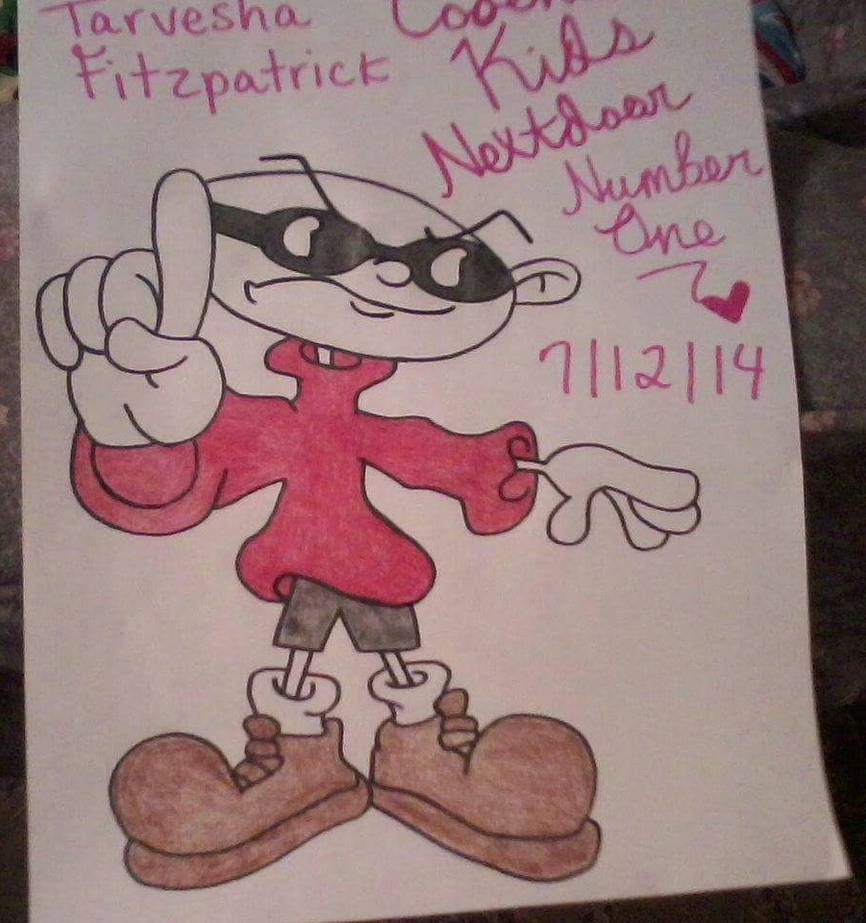 Tarvesha
Fitzpatrick
Kids
Nextdoor
Number
One
7/12/14